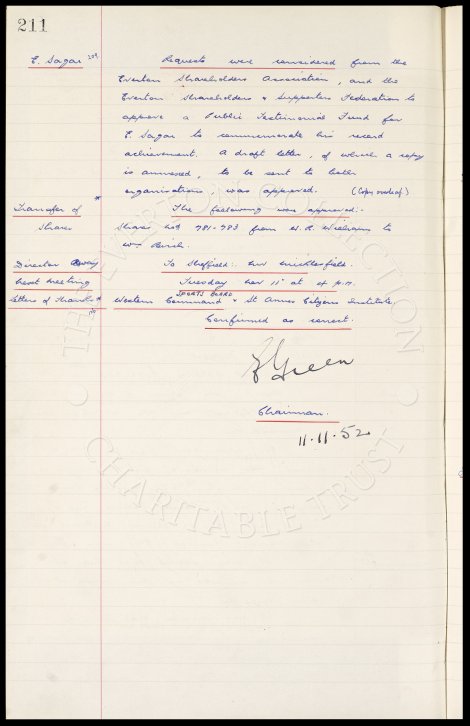 211
E. Sagar 209. Requests were considered from the
Everton Shareholders Association, and the
Everton Shareholders & Supporters Federation to
approve a Public Testimonial Fund for
E. Sagar to commemorate his record
achievement. A draft letter, of which a copy
is annexed, to be sent to both
organisations, was approved. (Copy overleaf.)
Transfer of * The following was approved:-
Shares Shares Nos 781-783 from W. R. Williams to
Wm Birch.
Director To Sheffield: Mr Micklesfield.
Next Meeting Tuesday Nov 11th at 4 P.M.
Letters of Thanks * Western Command SPORTS BOARD & St Annes Citizens Institute
Confirmed as correct.
Green
Chairman.
11.11.52
THE EVERTON COLLECTION
CHARITABLE TRUST